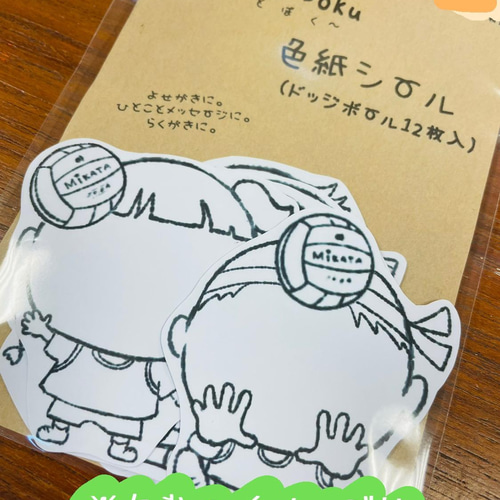 とぼく～
色紙シール
(ドッジボール12枚入)
よせがきに。
ひとことメッセージに。
らくがきに。
MiKATA
MiKATA